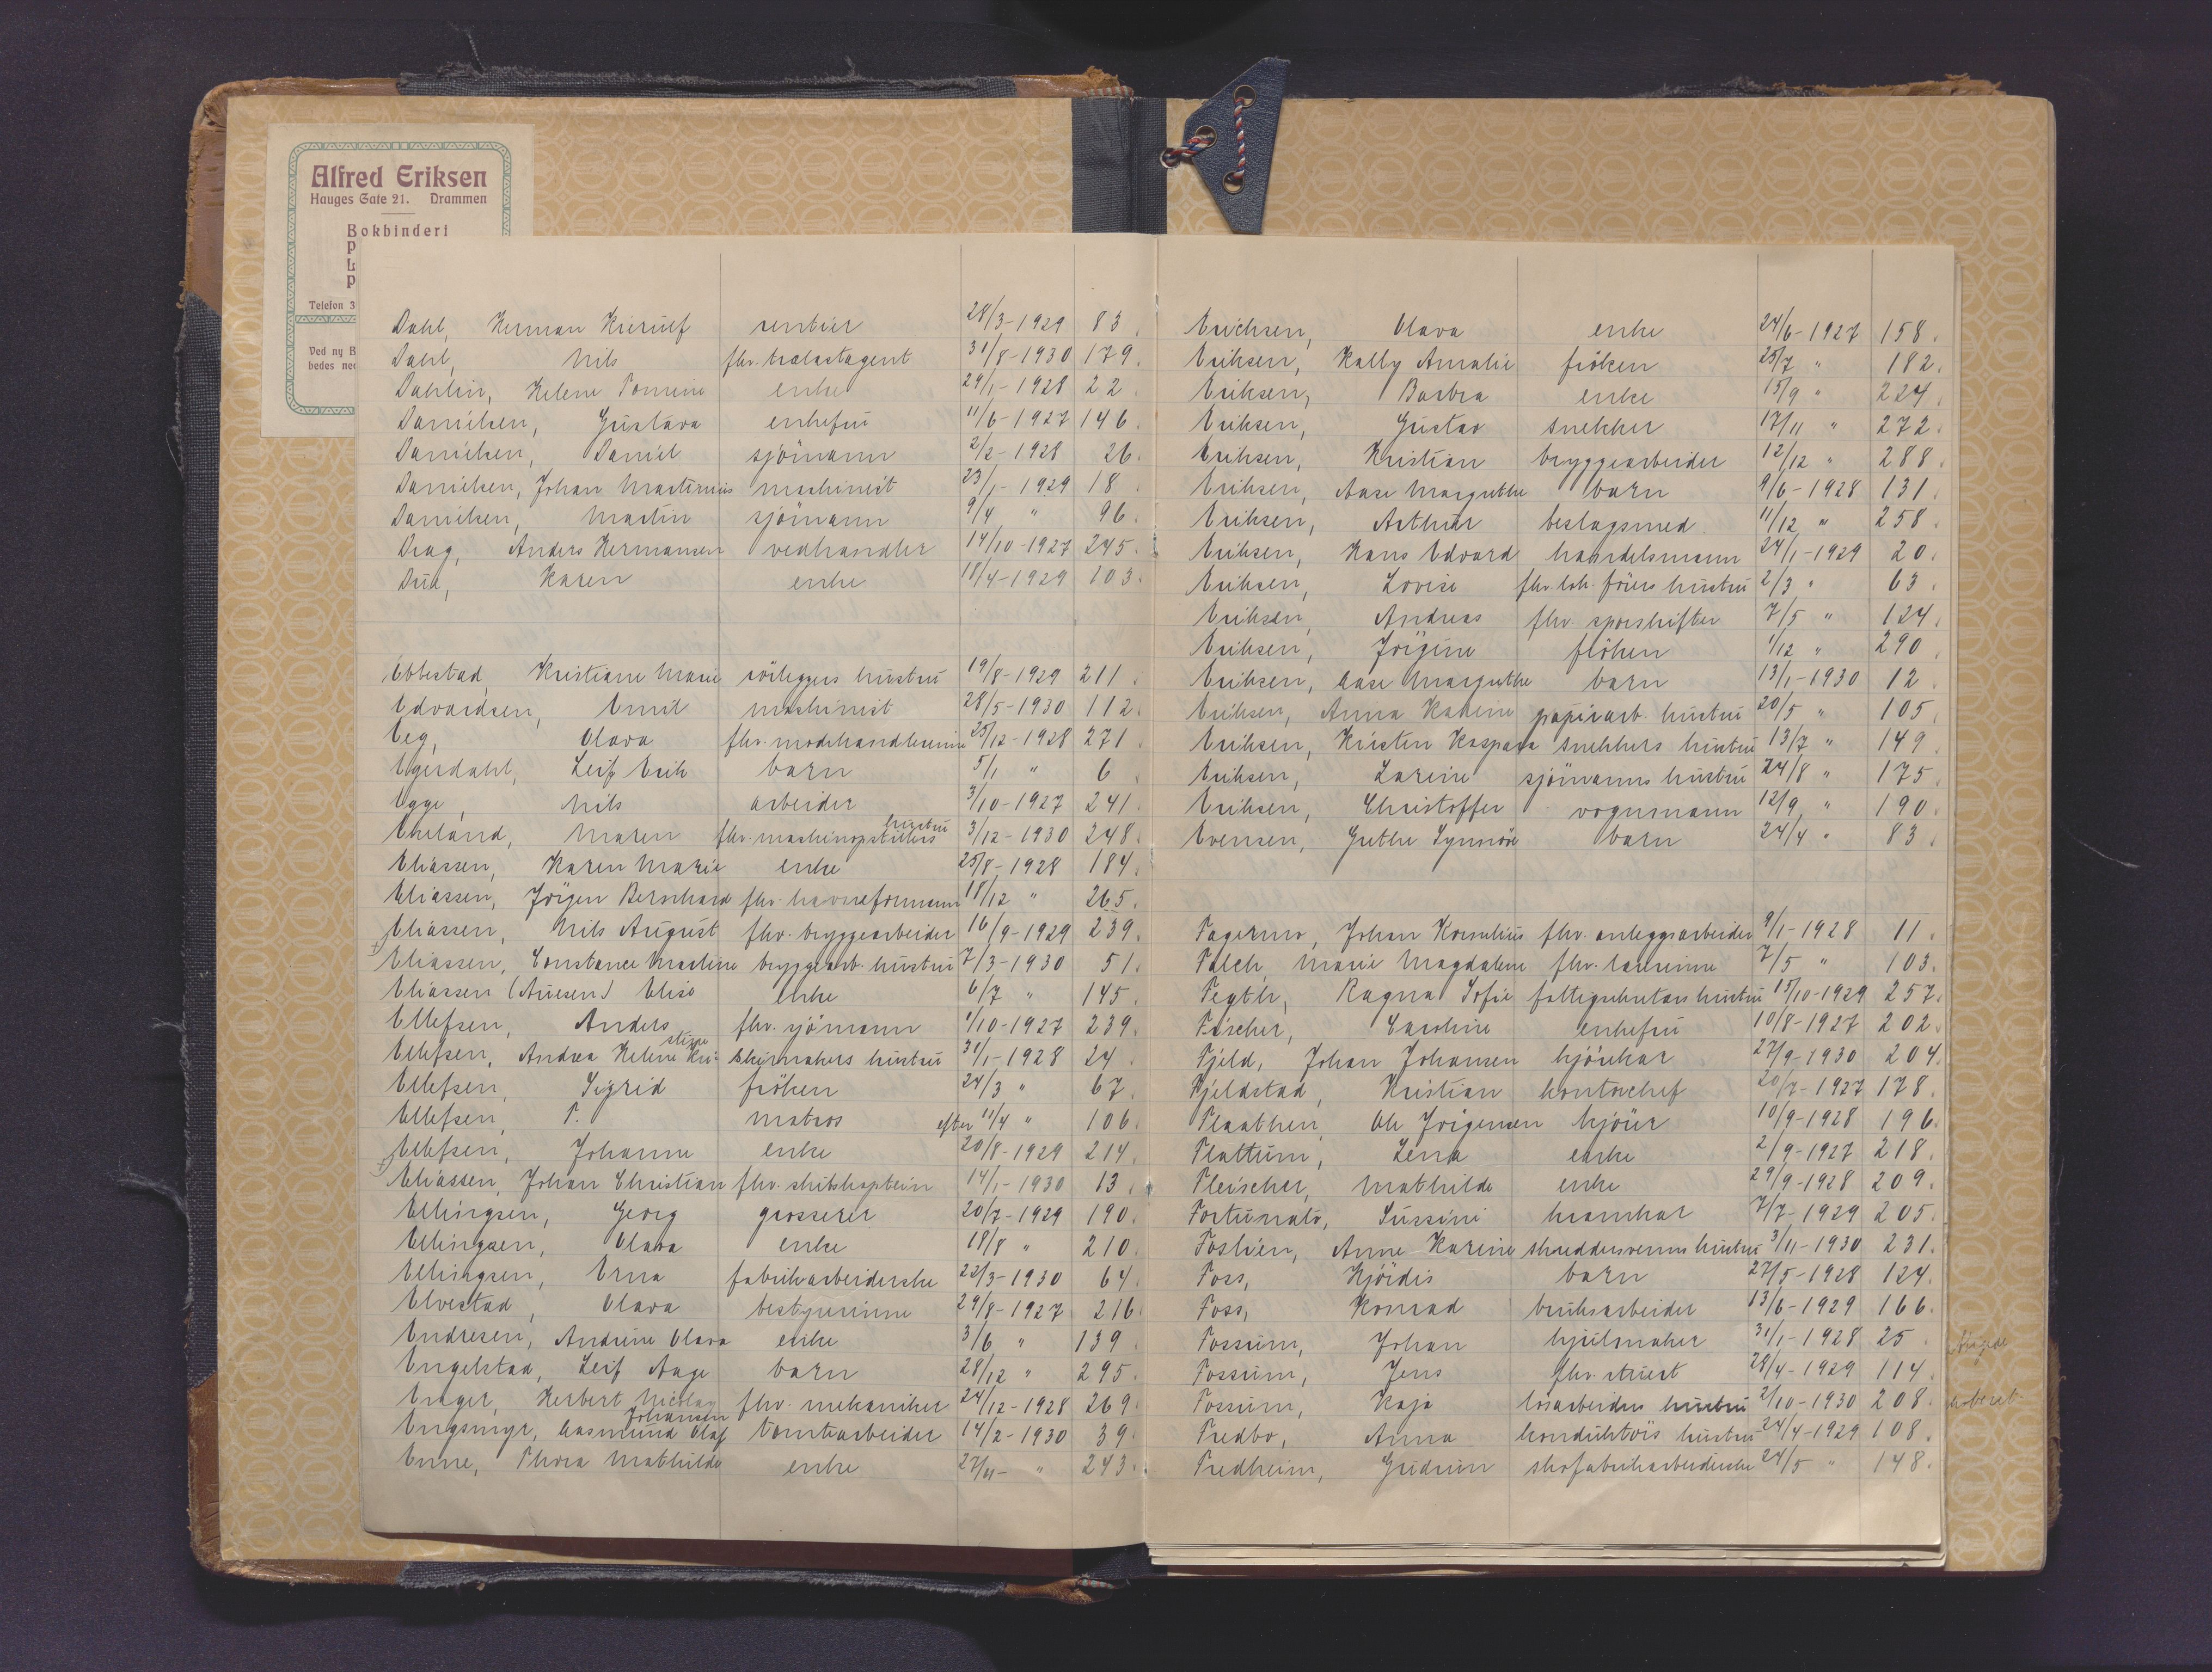 Alfred Eriksen
Hauges Gate 21. Drammen
Bokbinderi
P
L
P
Telefon 3
Ved ny B
bedes ned
Dahl, Herman Kierulf rentier 28/3-1929 83.
Dahl, Nils fhv. trælastagent 31/8-1930 179.
Dahlin, Helene Tomine enke 24/1-1928 22.
Danielsen, Gustava enkefru 11/6-1927 146.
Danielsen, Daniel sjömann 2/2-1928 26.
Danielsen, Johan Martinius maskinist 23/1-1929 18
Danielsen, Martin sjömann 9/4 " 96.
Drag, Anders Hermansen vedhandler 14/10-1927 245.
Due, Karen enke 18/4-1929 103.
Ebbestad, Kristiane Marie rörleggers hustru 19/8-1929 211.
Edvardsen, Emil maskinist 28/5-1930 112.
Eeg, Olava fhv. modehandlerinne 25/12-1928 271.
Egerdahl, Leif Erik barn 5/1 " 6
Egge, Nils arbeider 3/10-1927 241.
Ekeland, Maren fhv. maskinopsitters hustru 3/12-1930 248.
Eliassen, Karen Marie enke 25/8-1928 184.
Eliassen, Jörgen Bernhard fhv. havneformann 18/12 " 265.
Eliassen, Nils August fhv. bryggearbeider 16/9-1929 239.
Eliassen, Constance Martine bryggearb. hustru 7/3-1930 51.
Eliassen (Auesen) Elise enke 6/7 " 145.
Ellefsen, Anders fhv. sjömann 1/10-1927 239.
Ellefsen, Andrea Helene Kristine skipmakers hustru 31/1-1928 24.
Ellefsen, Sigrid fröken 24/3 " 67.
Ellefsen, P. matros efter 11/4 " 106.
Ellefsen, Johanne enke 20/8-1929 214.
Eliassen, Johan Christian fhv. skibskaptein 14/1-1930 13.
Ellingsen, Georg grosserer 20/7-1929 190.
Ellingsen, Olava enke 18/8 " 210.
Ellingsen, Erna fabrikarbeiderske 22/3-1930 64.
Elvestad, Olava bestyrerinne 29/8-1927 216.
Endresen, Andrine Olava enke 3/6 " 139.
Engelstad, Leif Aage barn 28/12 " 295.
Enger, Herbert Nicolay fhv. mekaniker 24/12-1928 269.
Engsmyr, Aasmund Olaf Johansen tomtearbeider 14/2-1930 39.
Enne, Thora Mathilde enke 27/11- " 243.
Erichsen, Olava enke 24/6-1927 158.
Eriksen, Kally Amalie fröken 25/7 " 182.
Eriksen, Barbra enke 15/9 " 224.
Eriksen, Gustav snekker 17/11 " 272.
Eriksen, Kristian bryggearbeider 12/12 " 288.
Eriksen, Aase Margrethe barn 9/6-1928 131.
Eriksen, Arthur beslagsmed 11/12 " 258.
Eriksen, Hans Edvard handelsmann 24/1-1929 20.
Eriksen, Lovise fhv. lok. förers hustru 2/3 " 63.
Eriksen, Andreas fhv. sporskifter 7/5 " 124.
Eriksen, Jörgine fröken 1/12 " 290.
Eriksen, Aase Margrethe barn 13/1-1930 12.
Eriksen, Anna Katrine papirarb. hustru 20/5 " 105.
Eriksen, Kirsten Kaspara snekkers hustru 13/7 " 149.
Eriksen, Larine sjömanns hustru 24/8 " 175.
Eriksen, Christoffer vognmann 12/9 " 190.
Evensen, Grethe Synnöve barn 24/4 " 83.
Fagermo, Johan Kornelius fhv. anleggsarbeider 9/1-1928 11.
Falch, Marie Magdalene fhv. lærerinne 7/5 " 103.
Fegth, Ragna Sofie fattigsekretærs hustru 15/10-1929 257.
Fischer, Caroline enkefru 10/8-1927 202.
Fjeld, Johan Johansen kjörekar 27/9-1930 204.
Fjeldstad, Kristian kontorchef 20/7-1927 178.
Flaathen, Ole Jörgensen kjörer 10/9-1928 196.
Flattum, Lena enke 2/9-1927 218.
Fleischer, Mathilde enke 29/9-1928 209.
Fortunato, Sussini kramkar 7/7-1929 205.
Foslien, Anne Karine skreddersvenns hustru 3/11-1930 231.
Foss, Hjördis barn 27/5-1928 124.
Foss, Konrad bruksarbeider 13/6-1929 166.
Fossum, Johan hjulmaker 31/1-1928 25.
Fossum, Jens fhv. stuert 28/4-1929 114.
Fossum, Kaja lösarbeiders hustru 2/10-1930 208.
Fredbo, Anna konduktörs hustru 24/4-1929 108.
Fredheim, Gudrun skofabrikarbeiderske 24/5 " 148.